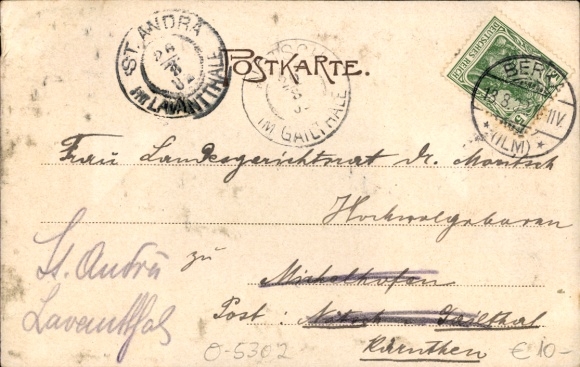 ST. ANDRÄ
IM LAVANTTHALE
POSTKARTE.
IM GAILTHALE
DEUTSCHES REICH
BERKA
(ILM)
Frau Landesgerichtsrat Dr.
Hochwolgeboren
zu
St. Andrä
Lavantthal
Post : Gailthal
Kärnthen
O-5302
€ 10-